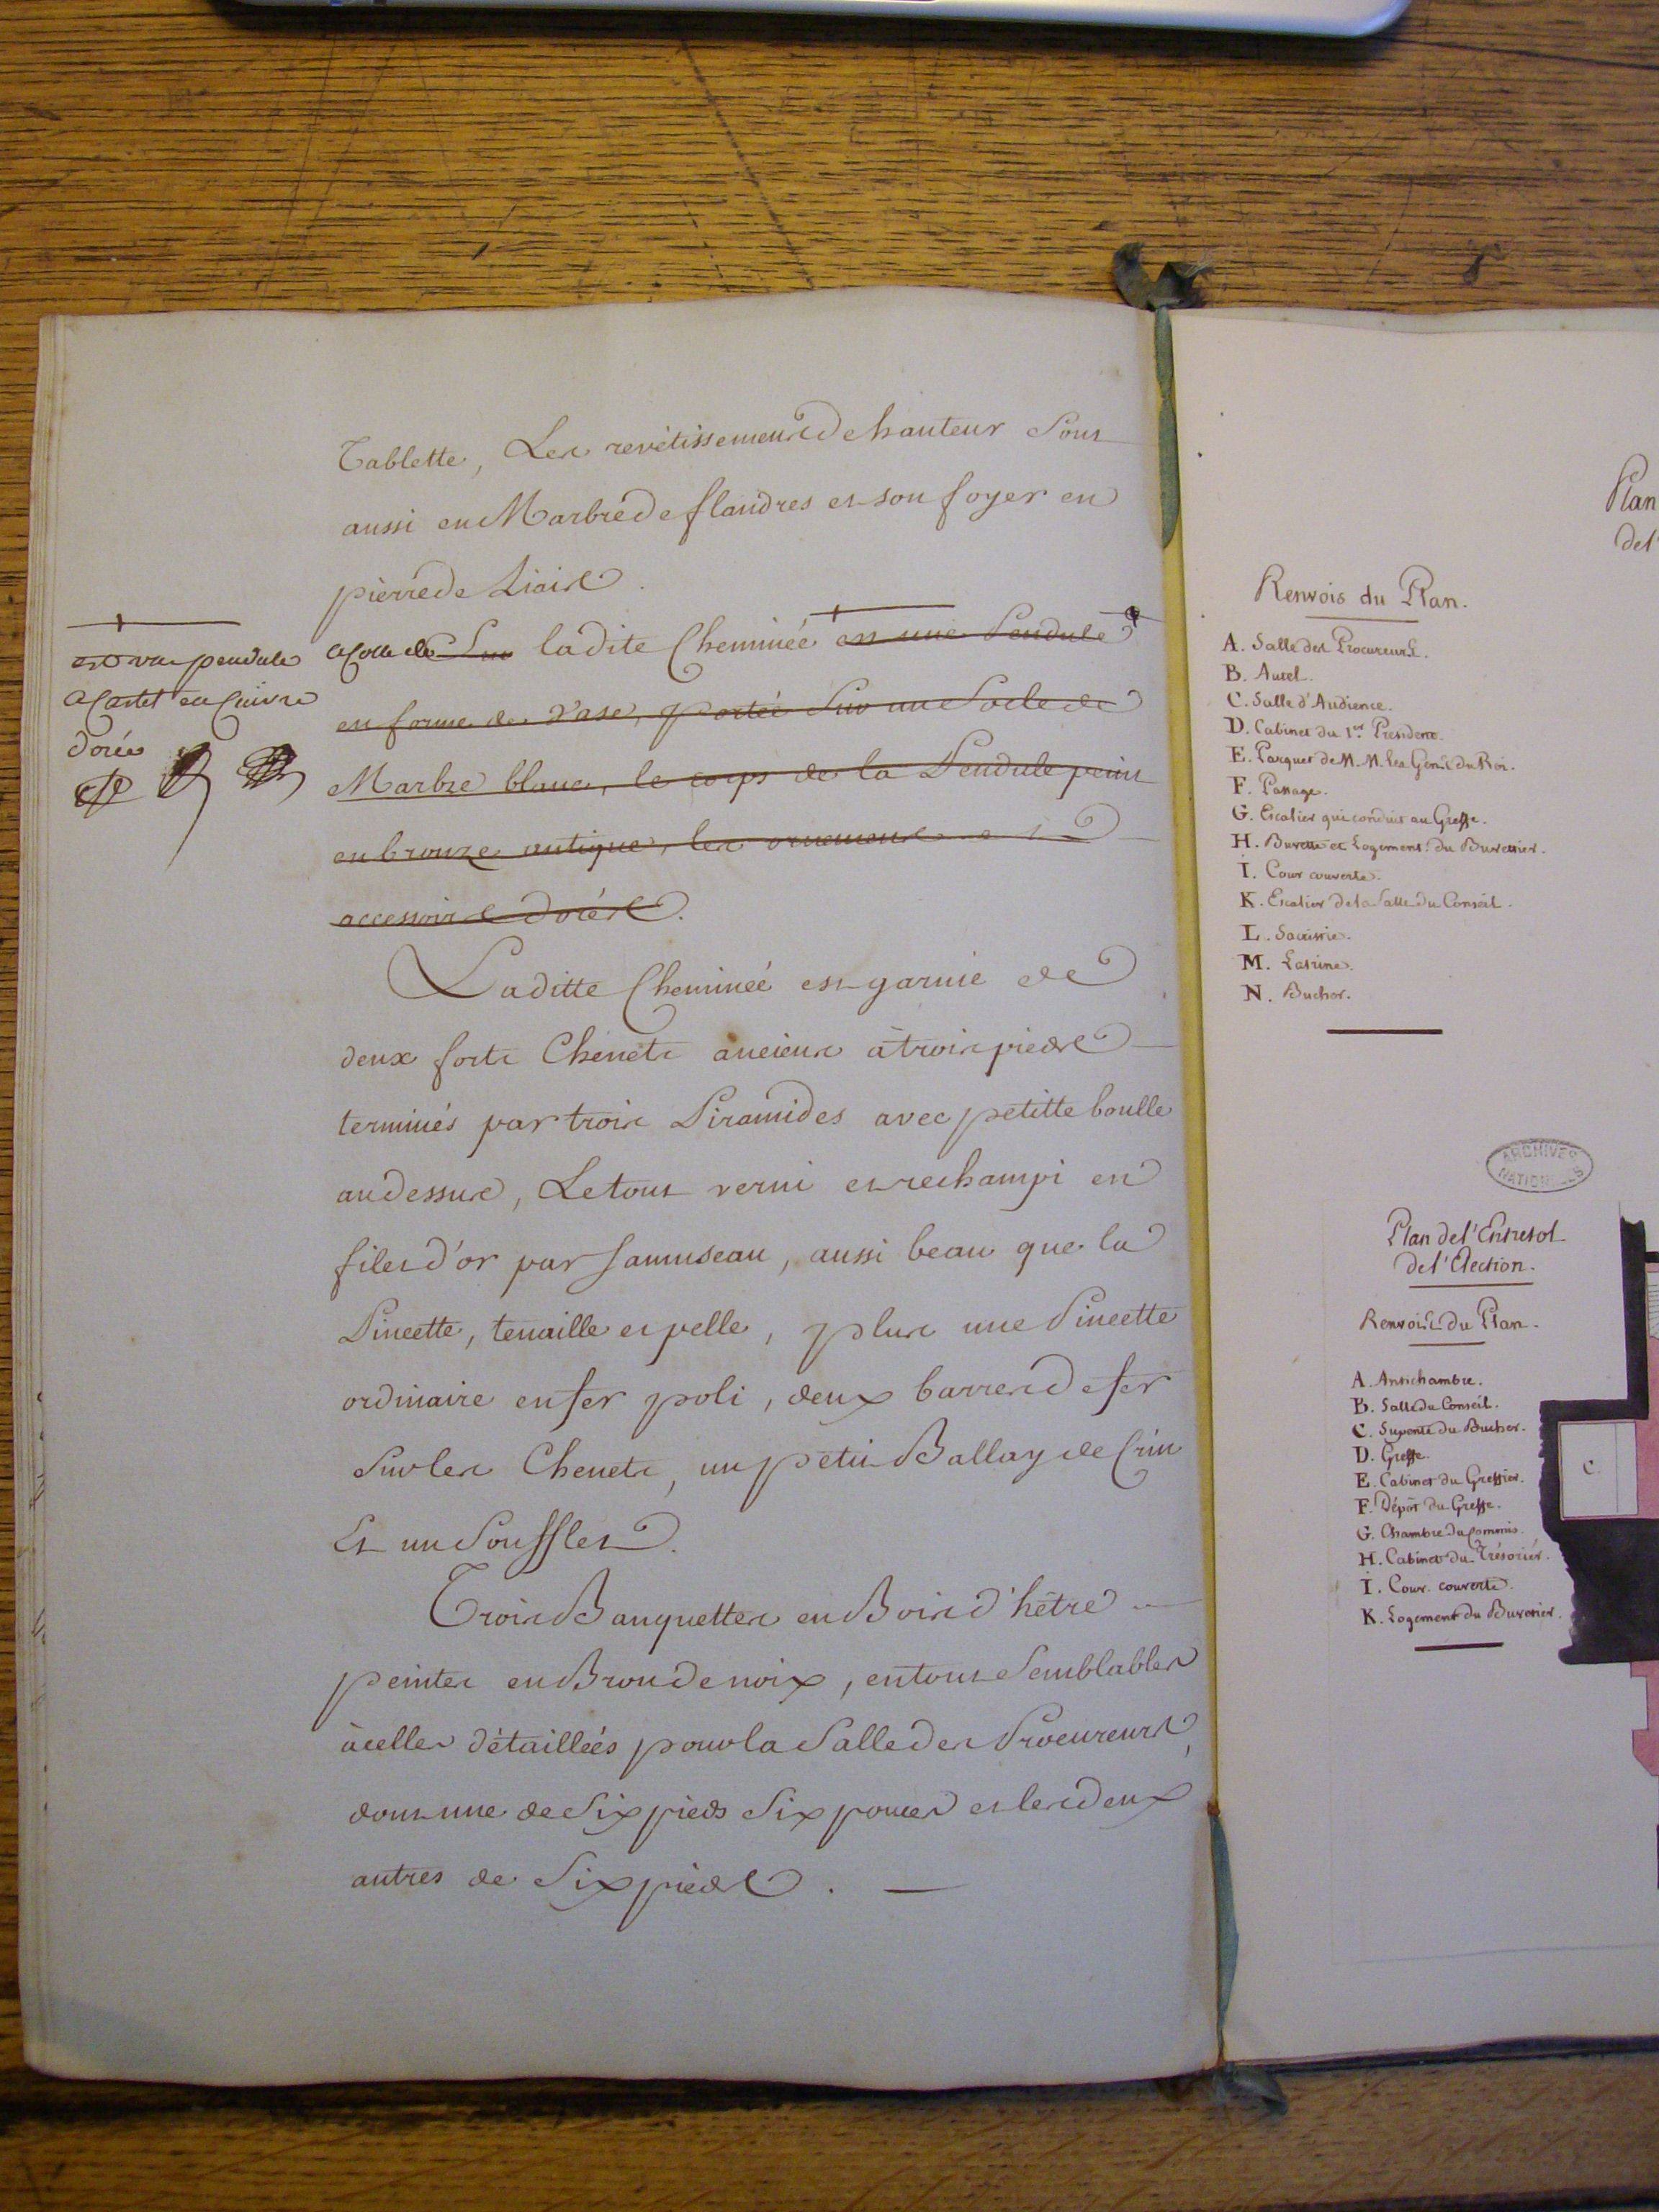 Tablette, Les revêtissements de hauteur sont
aussi en Marbre de flandres et son foyer en
pierre de Liais.
a Coste de Sur ladite Cheminée est une Pendule
en forme de Vase, portée sur un Socle de
Marbre blanc, le corps de la Pendule peint
en bronze antique, les ornements et
accessoires dorés.
est une pendule
a Cartel en Cuivre
dorée
Laditte Cheminéé est garnie de
deux forts Chenets anciens à trois pieds
terminés par trois Piramides avec petitte boulle
au dessus, Le tout verni et rechampi en
filets d'or par Samuseau, aussi beau que la
Pincette, tenaille et pelle, plus une Pincette
ordinaire en fer poli, deux barres de fer
sur les Chenets, un petit Ballay de Crin
Et un Soufflet.
Trois Banquettes en Bois d'hêtre
peintes en Brou de noix, en tout Semblables
à celles détailléés pour la Salle des Procureurs,
dont une de Six pieds Six pouces et les deux
autres de Six pieds.
Plan
del'
Renvois du Plan.
A. Salle des Procureurs.
B. Autel.
C. Salle d'Audience.
D. Cabinet du 1er. Président.
E. Parquet de M.M. les Gens du Roi.
F. Passage.
G. Escalier qui conduit au Greffe.
H. Buvette et Logement du Buvettier.
I. Cour couverte.
K. Escalier de la Salle du Conseil.
L. Sacristie.
M. Latrine.
N. Bucher.
ARCHIVES
NATIONALES
Plan de l'Entresol
de l'Election.
Renvois du Plan.
A. Antichambre.
B. Salle du Conseil.
C. Supente du Bucher.
D. Greffe.
E. Cabinet du Greffier.
F. Dépôt du Greffe.
G. Chambre du Commis.
H. Cabinet du Trésorier.
I. Cour couverte.
K. Logement du Buvetier.
C.